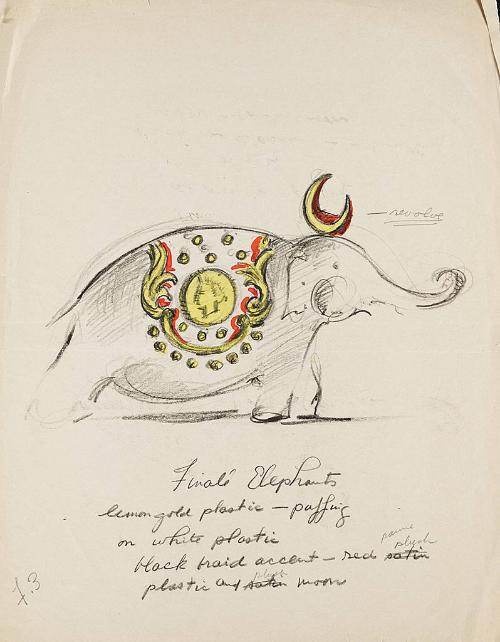 — revolve
Finalé Elephants
lemon gold plastic — puffing
on white plastic
panne
plush
black braid accent — red satin
plush
plastic and satin moon
f.3